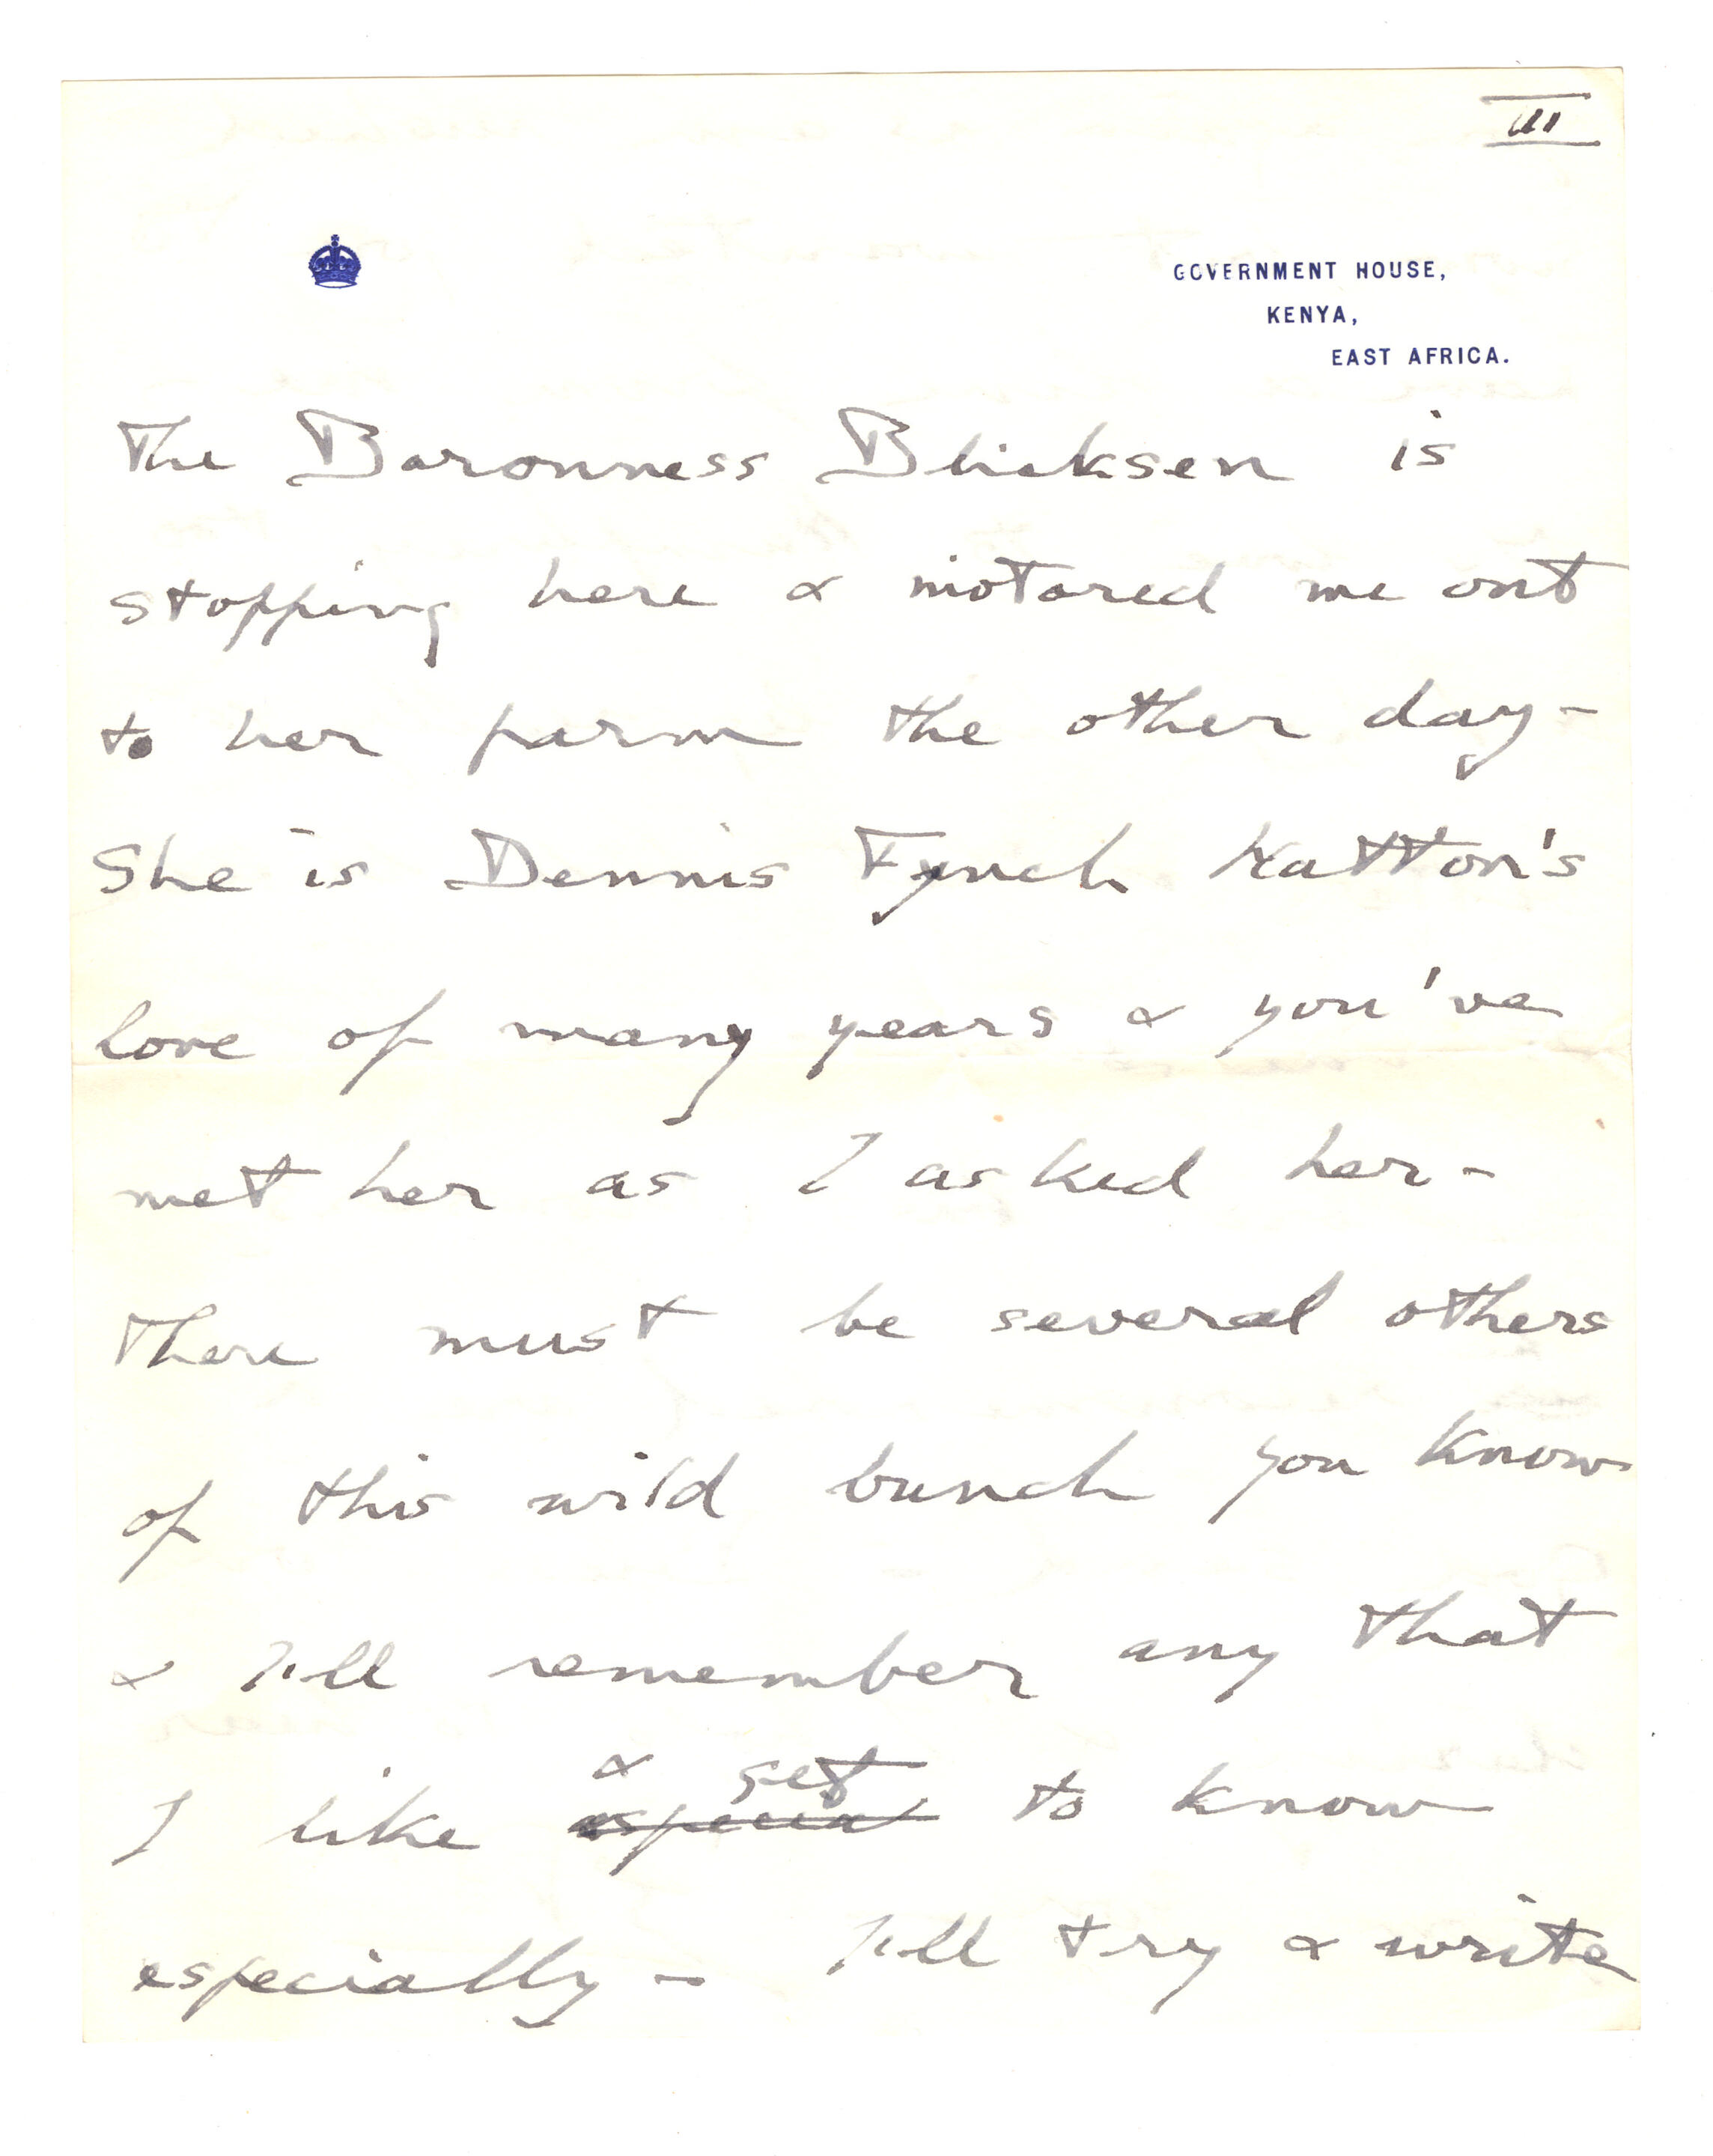 III
GOVERNMENT HOUSE,
KENYA,
EAST AFRICA.
The Baronness Blicksen is
stopping here & motored me out
to her farm the other day -
She is Dennis Fynch Hatton's
love of many years & you've
met her as I asked her -
There must be several others
of this wild bunch you know
& I'll remember any that
& get
I like especial to know
especially - I'll try & write